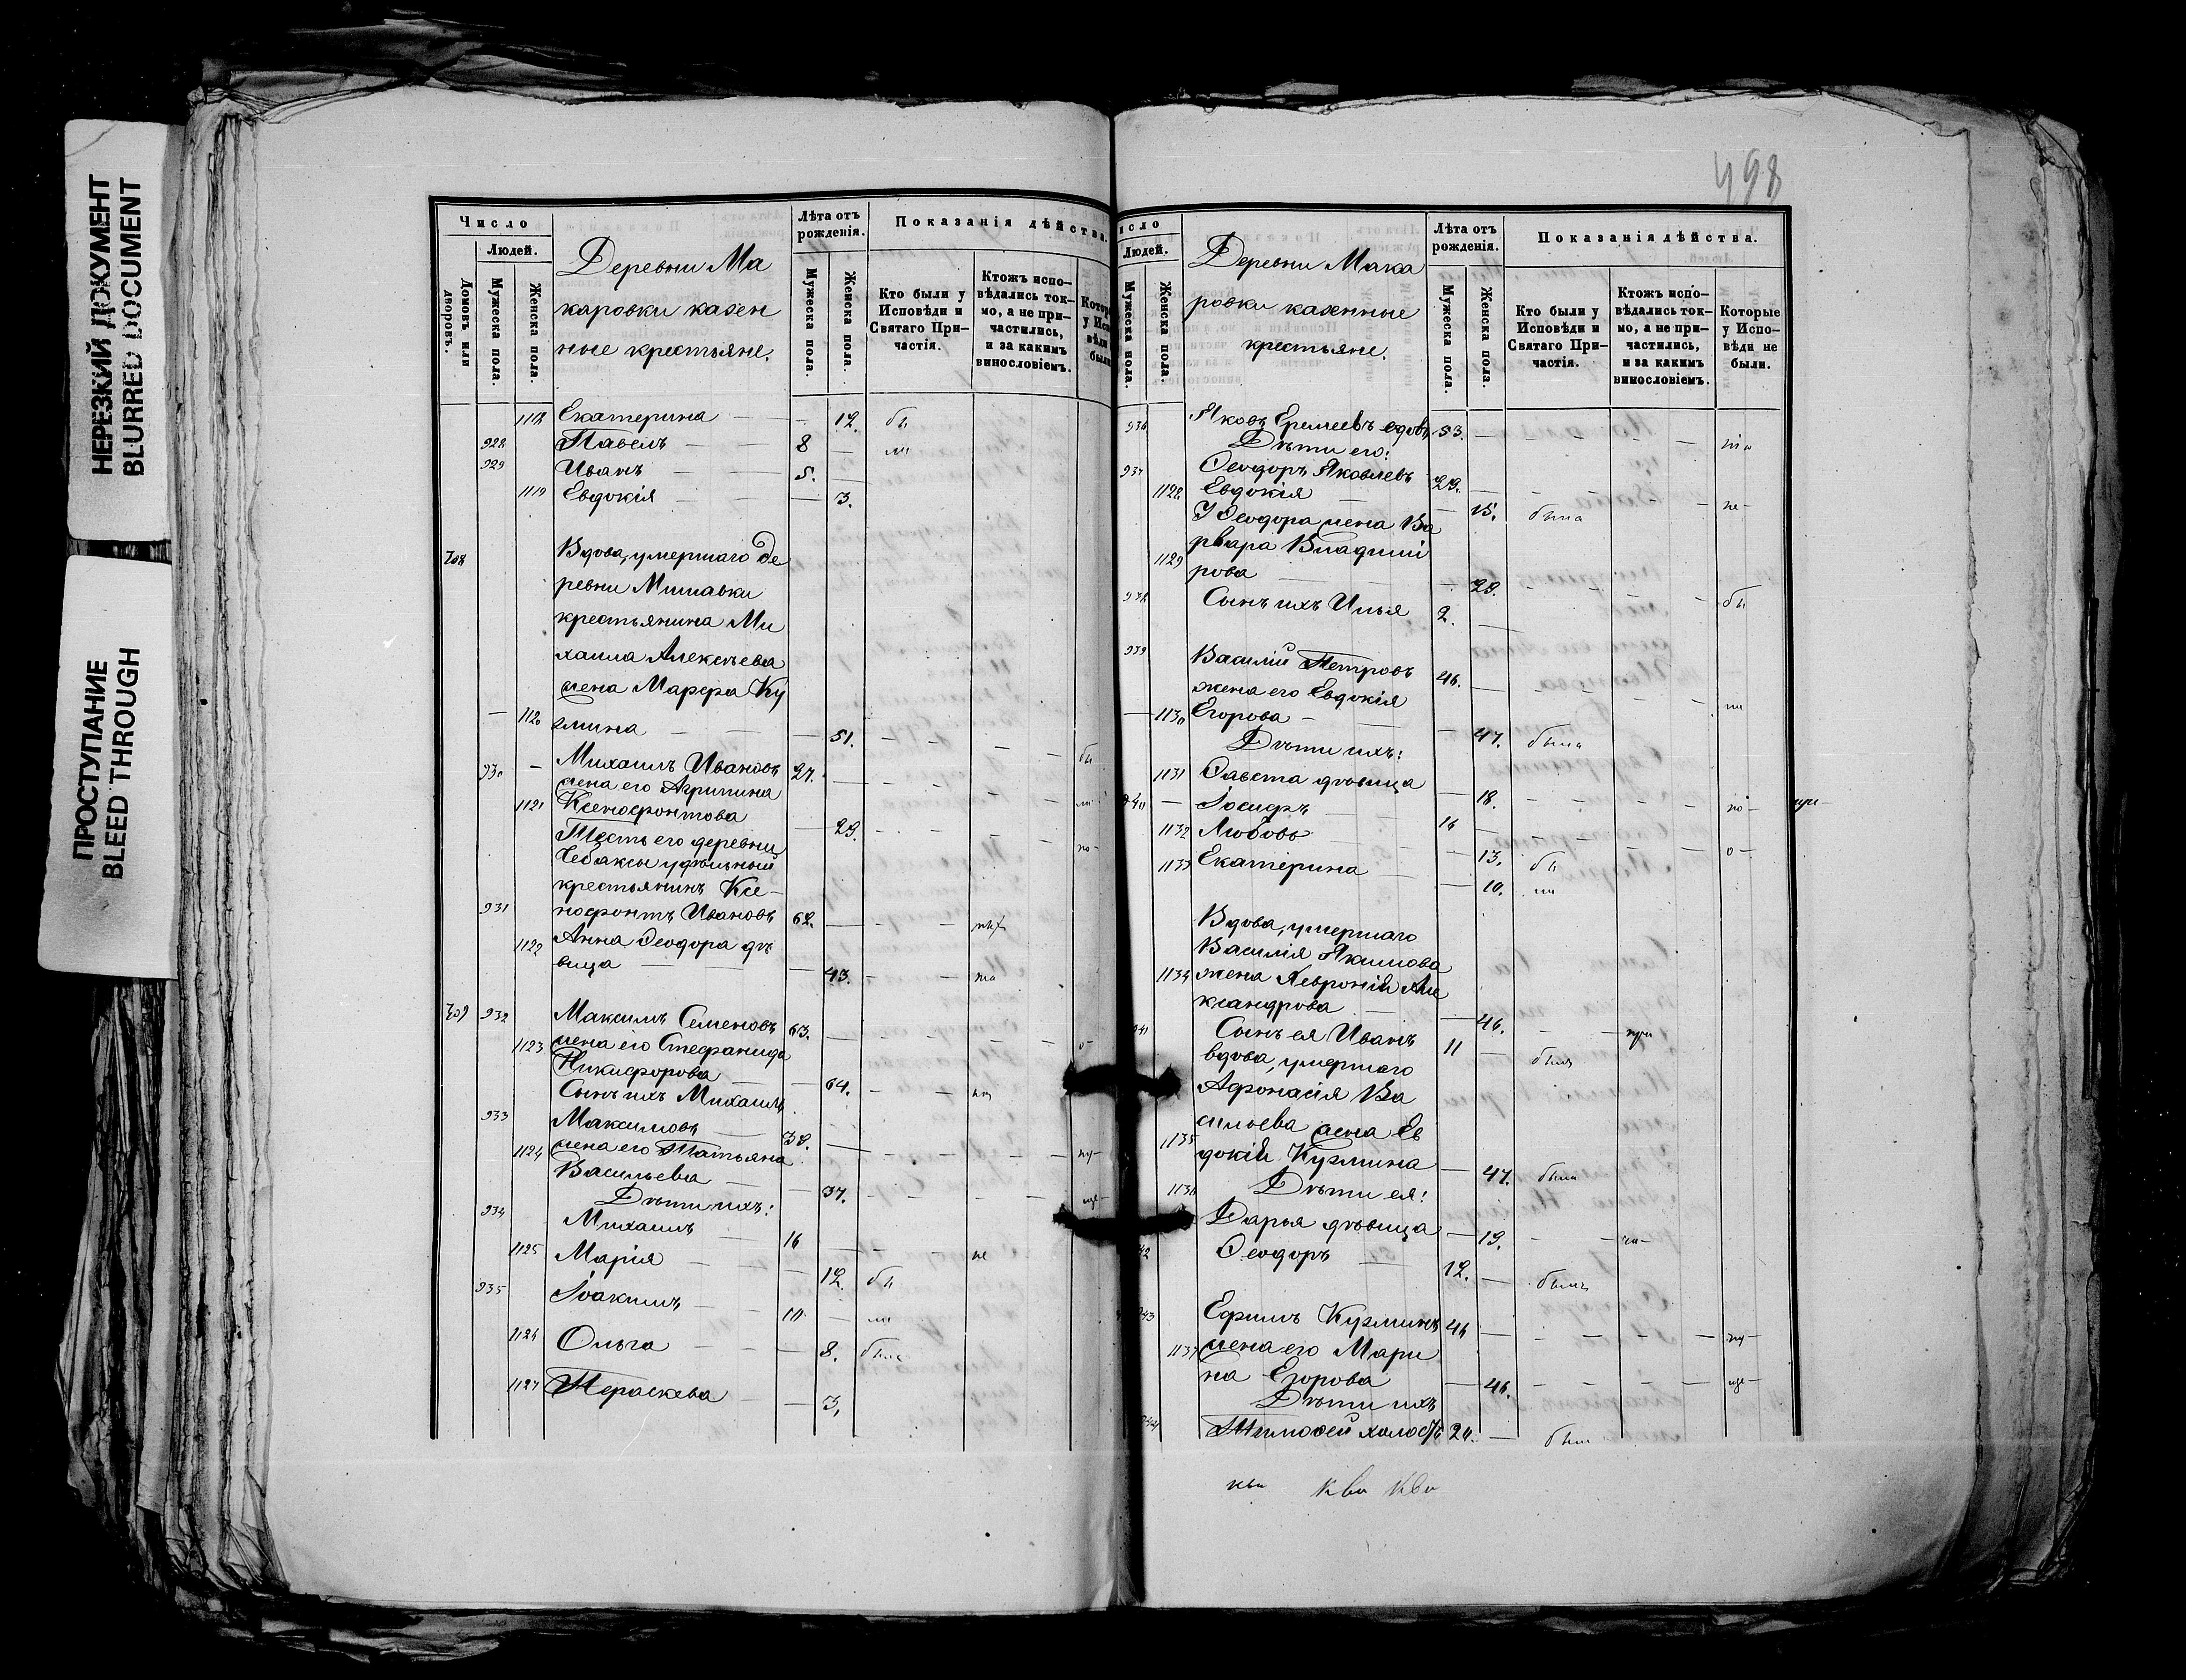 НЕРЕЗКИЙ ДОКУМЕНТ
BLURRED DOCUMENT
ПРОСТУПАНИЕ
BLEED THROUGH
498
Число
Людей.
Домовъ или дворовъ.
Мужеска пола.
Женска пола.
Деревни Ма
каровки казен
ные крестьяне.
Лѣта отъ рожденія.
Мужеска пола.
Женска пола.
Показанія дѣйства.
Кто были у Исповѣди и Святаго Причастія.
Ктожъ исповѣдались токмо, а не причастились, и за какимъ винословіемъ.
1118 Екатерина — 12. бы
928 Павелъ — 8 — ли
929 Иванъ — 5. —
1119 Евдокія — 3.
708 Вдова, умершаго де
ревни Мишавки
крестьянина Ми
хаила Алексѣева
жена Марфа Ку
1120 змина — 51. — бы
930 — Михаилъ Ивановъ 27. —
жена его Агрипина
1121 Ксенофонтова — 29. —
Тесть его деревни
Чебаксы удѣльный
крестьянинъ Ксе-
931 нофонтъ Ивановъ 62. —
1122 Анна Ѳеодора дѣ
вица — 43. —
709 932 Максимъ Семеновъ 63. —
1123 жена его Стефанида
Никифорова — 64. —
Сынъ ихъ Михаилъ
933 Максимовъ — 38. —
1124 жена его Татьяна
Васильева — 37. —
Дѣти ихъ:
934 Михаилъ — 16 — не
1125 Марія — 12. бы
935 Іоакимъ — 10 — ли
1126 Ольга — 8. была
1127 Параскева — 3.
Число
Людей.
Мужеска пола.
Женска пола.
Деревни Мака
ровки казенные
крестьяне.
Лѣта отъ рожденія.
Мужеска пола.
Женска пола.
Показанія дѣйства.
Кто были у Исповѣди и Святаго Причастія.
Ктожъ исповѣдались токмо, а не причастились, и за какимъ винословіемъ.
Которые у Исповѣди не были.
936 Яковъ Еремеевъ вдовъ 53. —
Дѣти его:
937 Ѳеодоръ Яковлевъ 29. —
1128 Евдокія — 15. была
У Ѳеодора жена Ва
рвара Владимі
1129 рова — 28. — бы
938 Сынъ ихъ Илья 2. —
939 Василій Петровъ 46. — ли
жена его Евдокія
1130 Егорова — 47. была
Дѣти ихъ:
1131 Савета дѣвица — 18. — по-
940 — Іосифъ — 16 —
1132 Любовь — 13. бы
1133 Екатерина — 10. ли
Вдова, умершаго
Василія Якимова
1134 жена Хевронія Але
ксандрова — 46. —
941 Сынъ ея Иванъ 11 — былъ
вдова, умершаго
Афонасія Ва
сильева жена Ев
1135 докія Кузмина — 47. была
1136 Дѣти ея:
Дарья дѣвица — 19. —
942 Ѳеодоръ — 12. — былъ
943 Ефимъ Кузминъ 46 —
1137 жена его Мари
на Егорова — 46. —
Дѣти ихъ
944 Тимоѳей холостъ 20. — былъ
ква ква ква